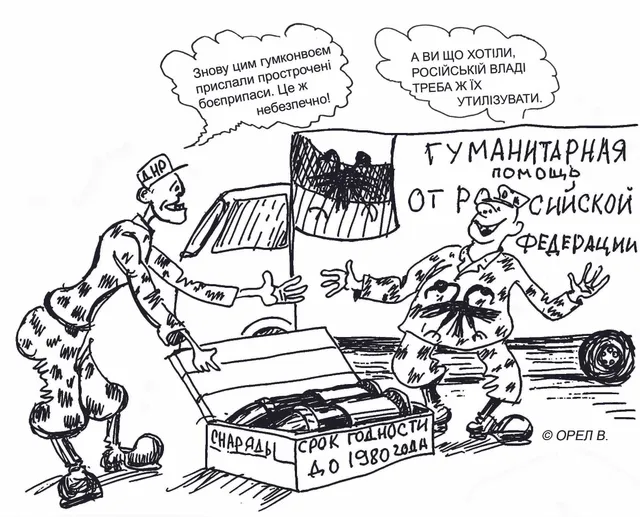 Знову цим гумконвоєм
прислали прострочені
боєприпаси. Це ж
небезпечно!
А ВИ ЩО ХОТІЛИ,
РОСІЙСЬКІЙ ВЛАДІ
ТРЕБА Ж ЇХ
УТИЛІЗУВАТИ.
ДНР
ГУМАНИТАРНАЯ
ПОМОЩЬ
ОТ РОССИЙСКОЙ
ФЕДЕРАЦИИ
СНАРЯДЫ
СРОК ГОДНОСТИ
ДО 1980 ГОДА
© ОРЕЛ В.